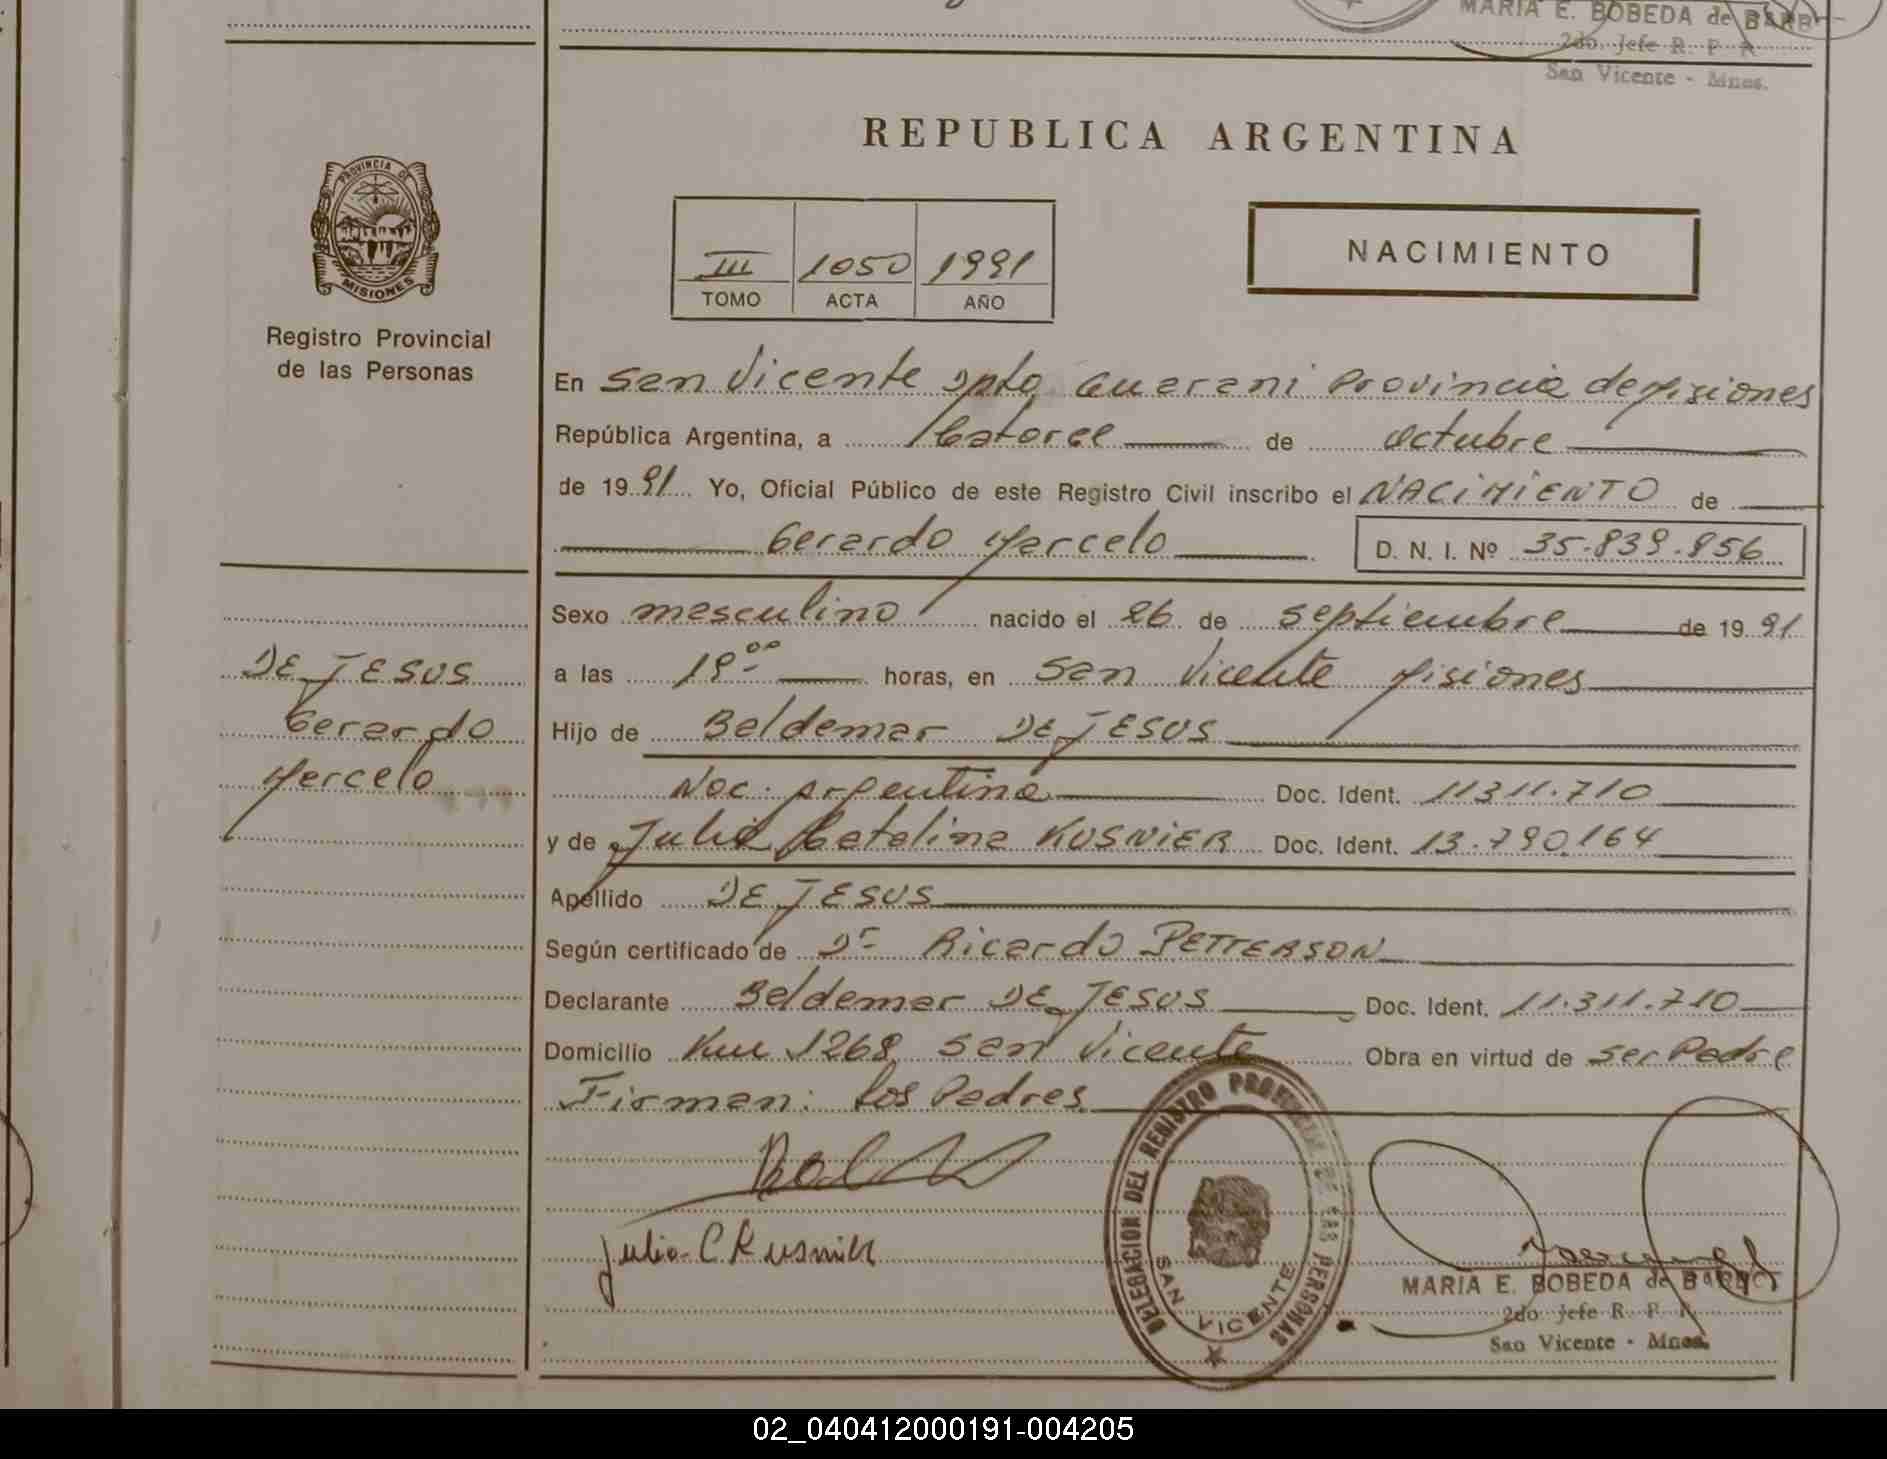 MARIA E. BOBEDA de BARB
2do. Jefe R. P. R.
San Vicente - Mnes.
REPUBLICA ARGENTINA
PROVINCIA DE
MISIONES
Registro Provincial
de las Personas
III 1050 1991
TOMO ACTA AÑO
NACIMIENTO
En San Vicente Dpto. Guarani Provincia de Misiones
República Argentina, a Catorce de Octubre
de 1991 Yo, Oficial Público de este Registro Civil inscribo el NACIMIENTO de
Gerardo Marcelo D. N. I. Nº 35.839.856
Sexo masculino nacido el 26 de septiembre de 1991
a las 19 00 horas, en San Vicente Misiones
Hijo de Baldemar DE JESUS
Nac. Argentina Doc. Ident. 11311.710
y de Julia Catalina KUSNIER Doc. Ident. 13.790.164
Apellido DE JESUS
Según certificado de Dr Ricardo PETTERSON
Declarante Baldemar DE JESUS Doc. Ident. 11.311.710
Domicilio Km 1268 San Vicente Obra en virtud de ser Padre
Firman: los Padres
DE JESUS
Gerardo
Marcelo
Julia C Kusnier
DELEGACION DEL REGISTRO PROVINCIAL DE LAS PERSONAS
SAN VICENTE
MARIA E. BOBEDA de
2do. Jefe R. P. R.
San Vicente - Mnes.
02_040412000191-004205